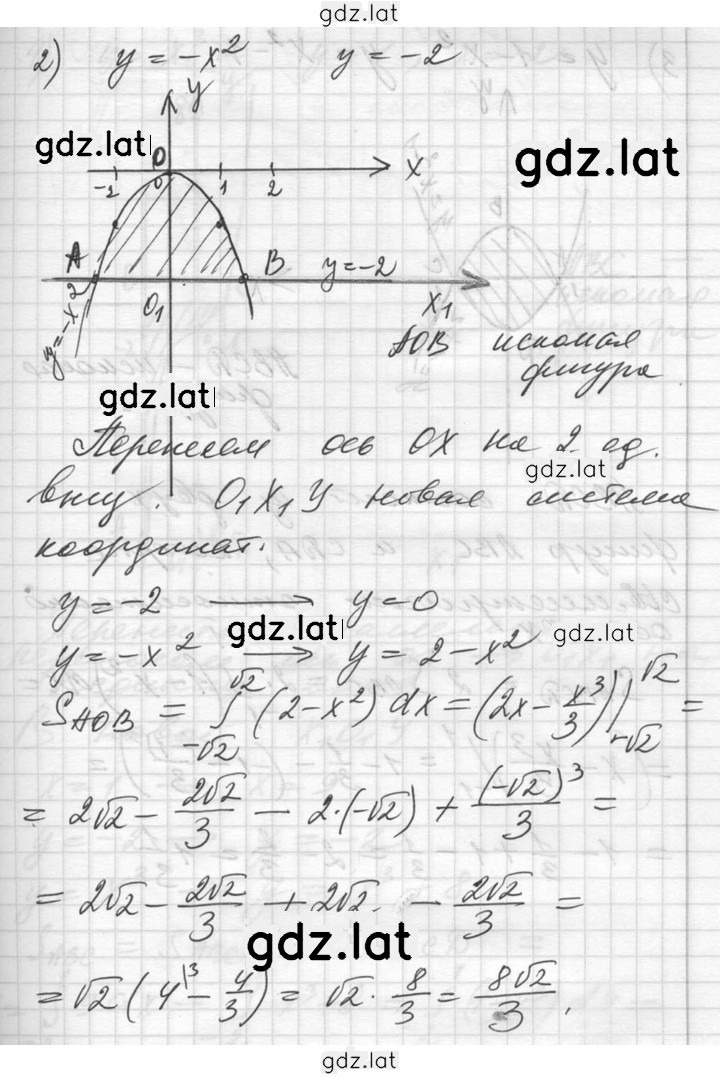 gdz.lat
2) y = -x² y = -2
y
gdz.lat
gdz.lat
0 x
-2 0 1 2
A B y=-2
O₁ x₁
y=-x²
AOB искомая
фигура
gdz.lat
Перенесем ось OX на 2 ед.
gdz.lat
вниз. O₁X₁Y новая система
координат.
y=-2 → y=0
gdz.lat gdz.lat
y=-x² → y = 2-x²
S_AOB = ∫_{-√2}^{√2} (2-x²) dx = (2x - x³/3) |_{-√2}^{√2} =
= 2√2 - 2√2/3 - 2·(-√2) + (-√2)³/3 =
= 2√2 - 2√2/3 + 2√2 - 2√2/3 =
gdz.lat
= √2 (4\3 - 4/3) = √2 · 8/3 = 8√2/3.
gdz.lat